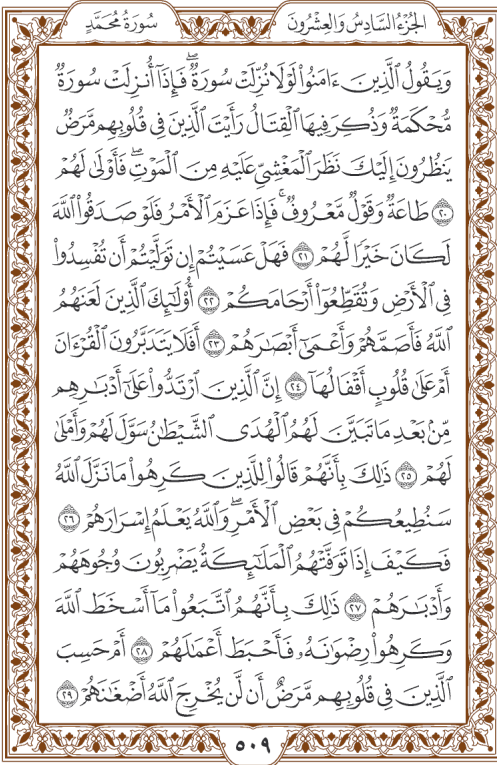 الجُزْءُ السَّادِسُ وَالعِشْرُونَ
سُورَةُ مُحَمَّدٍ
وَيَقُولُ ٱلَّذِينَ ءَامَنُواْ لَوْلَا نُزِّلَتْ سُورَةٌۖ فَإِذَآ أُنزِلَتْ سُورَةٌ
مُّحْكَمَةٌ وَذُكِرَ فِيهَا ٱلْقِتَالُ رَأَيْتَ ٱلَّذِينَ فِي قُلُوبِهِم مَّرَضٌ
يَنظُرُونَ إِلَيْكَ نَظَرَ ٱلْمَغْشِيِّ عَلَيْهِ مِنَ ٱلْمَوْتِۖ فَأَوْلَىٰ لَهُمْ
٢٠ طَاعَةٌ وَقَوْلٌ مَّعْرُوفٌۚ فَإِذَا عَزَمَ ٱلْأَمْرُ فَلَوْ صَدَقُواْ ٱللَّهَ
لَكَانَ خَيْرًا لَّهُمْ ٢١ فَهَلْ عَسَيْتُمْ إِن تَوَلَّيْتُمْ أَن تُفْسِدُواْ
فِي ٱلْأَرْضِ وَتُقَطِّعُوٓاْ أَرْحَامَكُمْ ٢٢ أُوْلَـٰٓئِكَ ٱلَّذِينَ لَعَنَهُمُ
ٱللَّهُ فَأَصَمَّهُمْ وَأَعْمَىٰٓ أَبْصَـٰرَهُمْ ٢٣ أَفَلَا يَتَدَبَّرُونَ ٱلْقُرْءَانَ
أَمْ عَلَىٰ قُلُوبٍ أَقْفَالُهَآ ٢٤ إِنَّ ٱلَّذِينَ ٱرْتَدُّواْ عَلَىٰٓ أَدْبَـٰرِهِم
مِّنۢ بَعْدِ مَا تَبَيَّنَ لَهُمُ ٱلْهُدَى ٱلشَّيْطَـٰنُ سَوَّلَ لَهُمْ وَأَمْلَىٰ
لَهُمْ ٢٥ ذَٰلِكَ بِأَنَّهُمْ قَالُواْ لِلَّذِينَ كَرِهُواْ مَا نَزَّلَ ٱللَّهُ
سَنُطِيعُكُمْ فِي بَعْضِ ٱلْأَمْرِۖ وَٱللَّهُ يَعْلَمُ إِسْرَارَهُمْ ٢٦
فَكَيْفَ إِذَا تَوَفَّتْهُمُ ٱلْمَلَـٰٓئِكَةُ يَضْرِبُونَ وُجُوهَهُمْ
وَأَدْبَـٰرَهُمْ ٢٧ ذَٰلِكَ بِأَنَّهُمُ ٱتَّبَعُواْ مَآ أَسْخَطَ ٱللَّهَ
وَكَرِهُواْ رِضْوَٰنَهُۥ فَأَحْبَطَ أَعْمَـٰلَهُمْ ٢٨ أَمْ حَسِبَ
ٱلَّذِينَ فِي قُلُوبِهِم مَّرَضٌ أَن لَّن يُخْرِجَ ٱللَّهُ أَضْغَـٰنَهُمْ ٢٩
٥٠٩